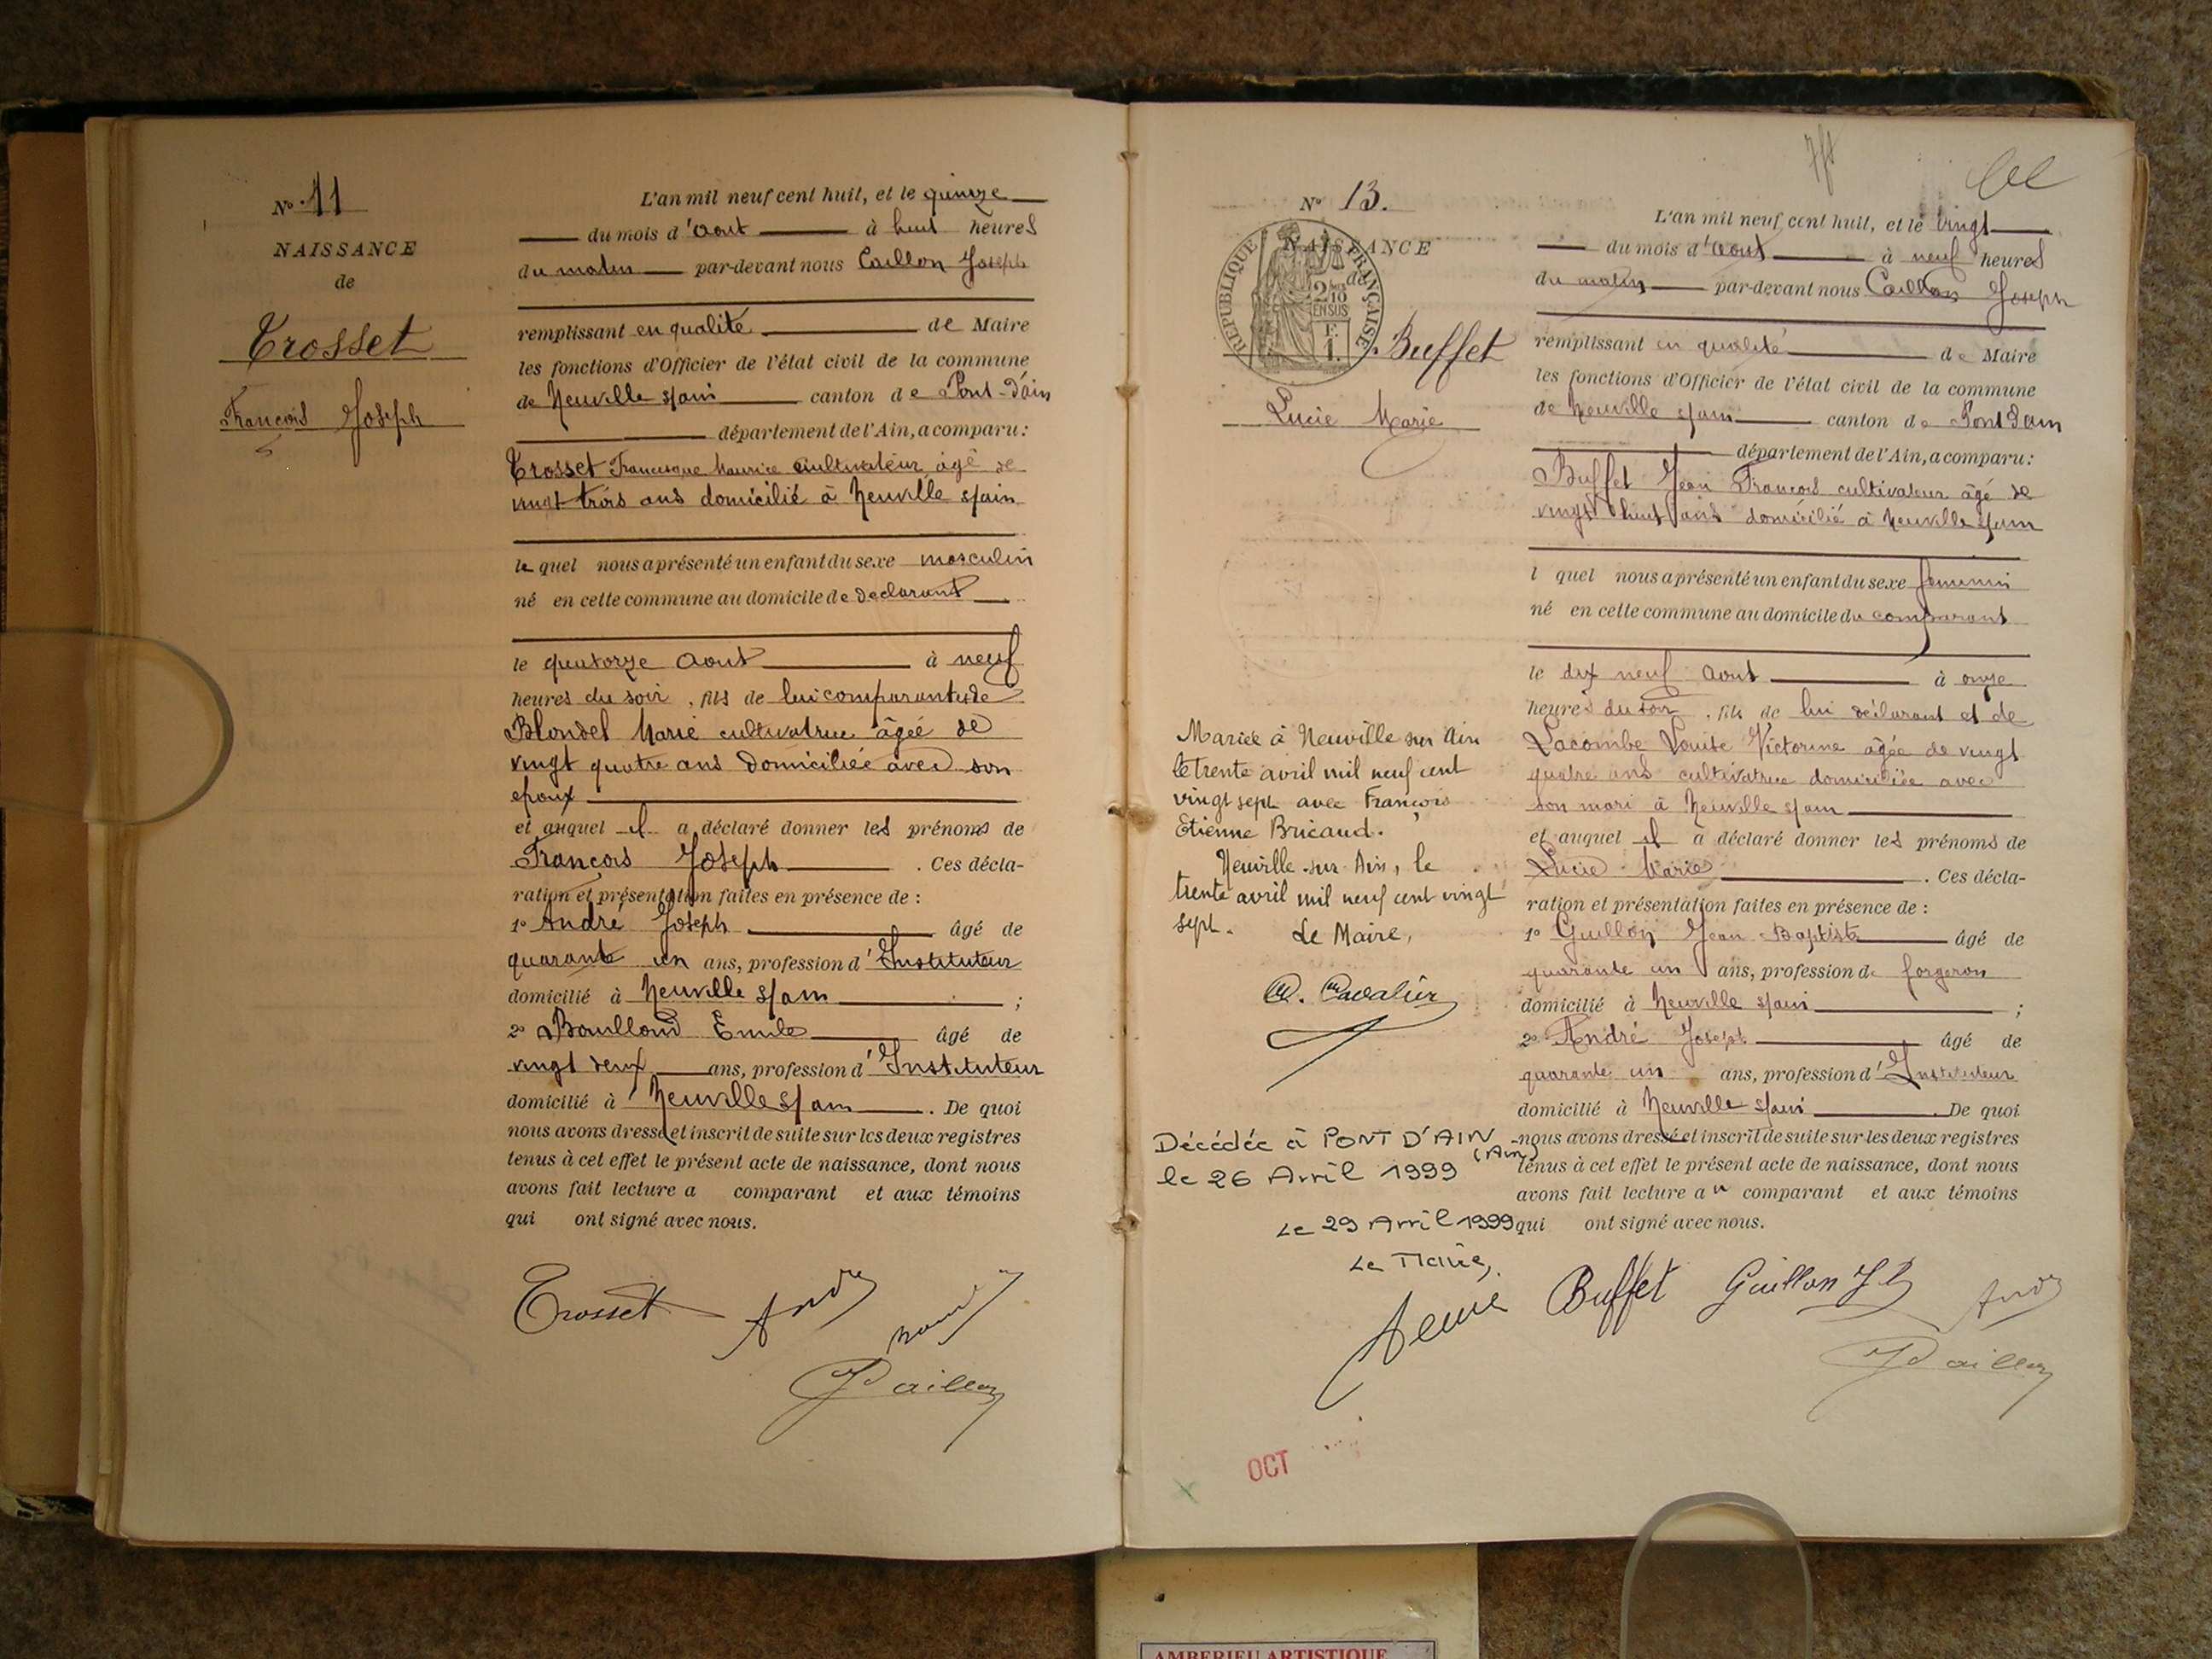 N° 11
NAISSANCE
de
Trosset
François Joseph
L'an mil neuf cent huit, et le quinze
du mois d'aout à huit heures
du matin par-devant nous Caillon Joseph
remplissant en qualité de Maire
les fonctions d'Officier de l'état civil de la commune
de Neuville s/ain canton de Pont-d'ain
département de l'Ain, a comparu:
Trosset Francisque Maurice cultivateur âgé de
vingt trois ans domicilié à Neuville s/ain
le quel nous a présenté un enfant du sexe masculin
né en cette commune au domicile de declarant
le quatorze aout à neuf
heures du soir, fils de lui comparant et de
Blondel Marie cultivatrice âgée de
vingt quatre ans domiciliée avec son
epoux
et auquel il a déclaré donner les prénoms de
François Joseph. Ces décla-
ration et présentation faites en présence de :
1° André Joseph âgé de
quarante un ans, profession d'Instituteur
domicilié à Neuville s/ain ;
2° Emile âgé de
vingt deux ans, profession d'Instituteur
domicilié à Neuville s/ain. De quoi
nous avons dressé et inscrit de suite sur les deux registres
tenus à cet effet le présent acte de naissance, dont nous
avons fait lecture a comparant et aux témoins
qui ont signé avec nous.
Trosset André
JCaillon
N° 13.
NAISSANCE
de
REPUBLIQUE FRANÇAISE
Buffet
Lucie Marie
L'an mil neuf cent huit, et le vingt
du mois d'aout à neuf heures
du matin par-devant nous Caillon Joseph
remplissant en qualité de Maire
les fonctions d'Officier de l'état civil de la commune
de Neuville s/ain canton de Pont d'ain
département de l'Ain, a comparu:
Buffet Jean François cultivateur âgé de
vingt huit ans domicilié à Neuville s/ain
l quel nous a présenté un enfant du sexe feminin
né en cette commune au domicile du comparant
le dix neuf aout à onze
heures du soir, fils de lui déclarant et de
Lacombe Louise Victorine âgée de vingt
quatre ans cultivatrice domiciliée avec
son mari à Neuville s/ain
et auquel il a déclaré donner les prénoms de
Lucie Marie. Ces décla-
ration et présentation faites en présence de :
1° Guillon Jean Baptiste âgé de
quarante un ans, profession de forgeron
domicilié à Neuville s/ain ;
2° André Joseph âgé de
quarante un ans, profession d'Instituteur
domicilié à Neuville s/ain. De quoi
nous avons dressé et inscrit de suite sur les deux registres
tenus à cet effet le présent acte de naissance, dont nous
avons fait lecture au comparant et aux témoins
qui ont signé avec nous.
Buffet Guillon J B André
JCaillon
Mariée à Neuville sur Ain
le trente avril mil neuf cent
vingt sept avec François
Etienne Bricaud.
Neuville-sur-Ain, le
trente avril mil neuf cent vingt
sept. Le Maire,
Cavalier
Décédée à PONT D'AIN
(Ain)
le 26 Avril 1999
Le 29 Avril 1999
Le Maire,
OCT
AMBERIEU ARTISTIQUE